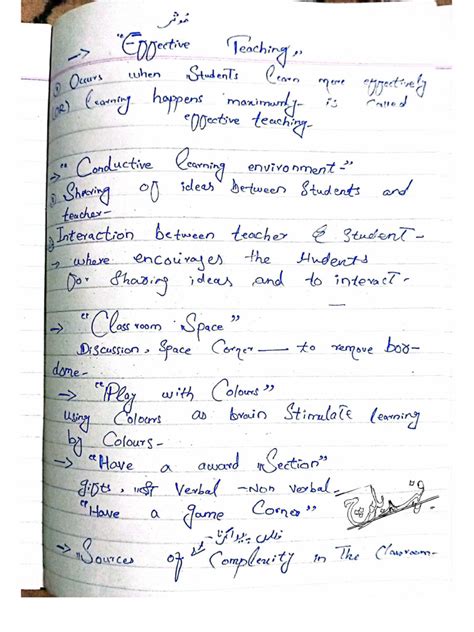 موثر
→ "Effective Teaching"
① Occurs when Students learn more effectively
(OR) learning happens maximumly is called
effective teaching-
→ "Conductive learning environment-"
① Sharing of ideas between Students and
teacher-
② Interaction between teacher & Student-
→ where encourages the students
for Sharing ideas and to interact-
→ "Class room Space"
Discussion, Space Corner — to remove bor-
dome-
→ "Play with Colours"
using Colours as brain Stimulate learning
by Colours-
→ "Have a award Section"
gifts, Verbal - Non verbal-
"Have a game Corner"
→ "Sources of Complexity in The Classroom-